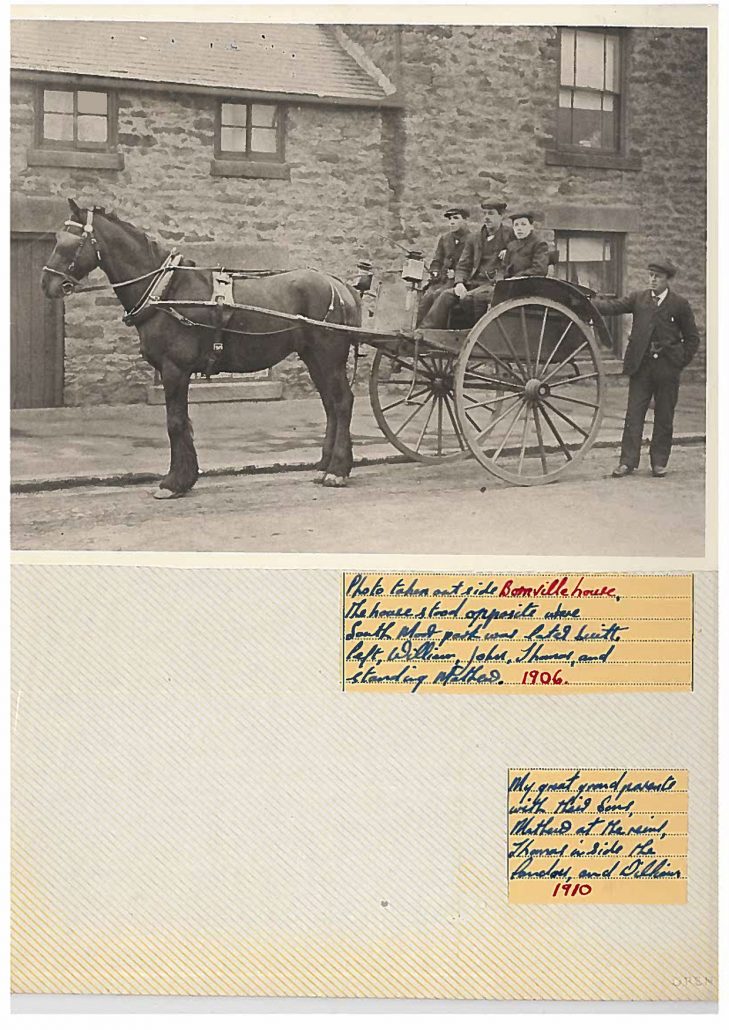 Photo taken out side Bornville house,
the house stood opposite were
South Moor park was later built,
left, William, John, Thomas, and
standing Mathew. 1906.
My great grand parents
with their Sons,
Mathew at the reins,
Thomas in side the
Landou, and William
1910
OPEN